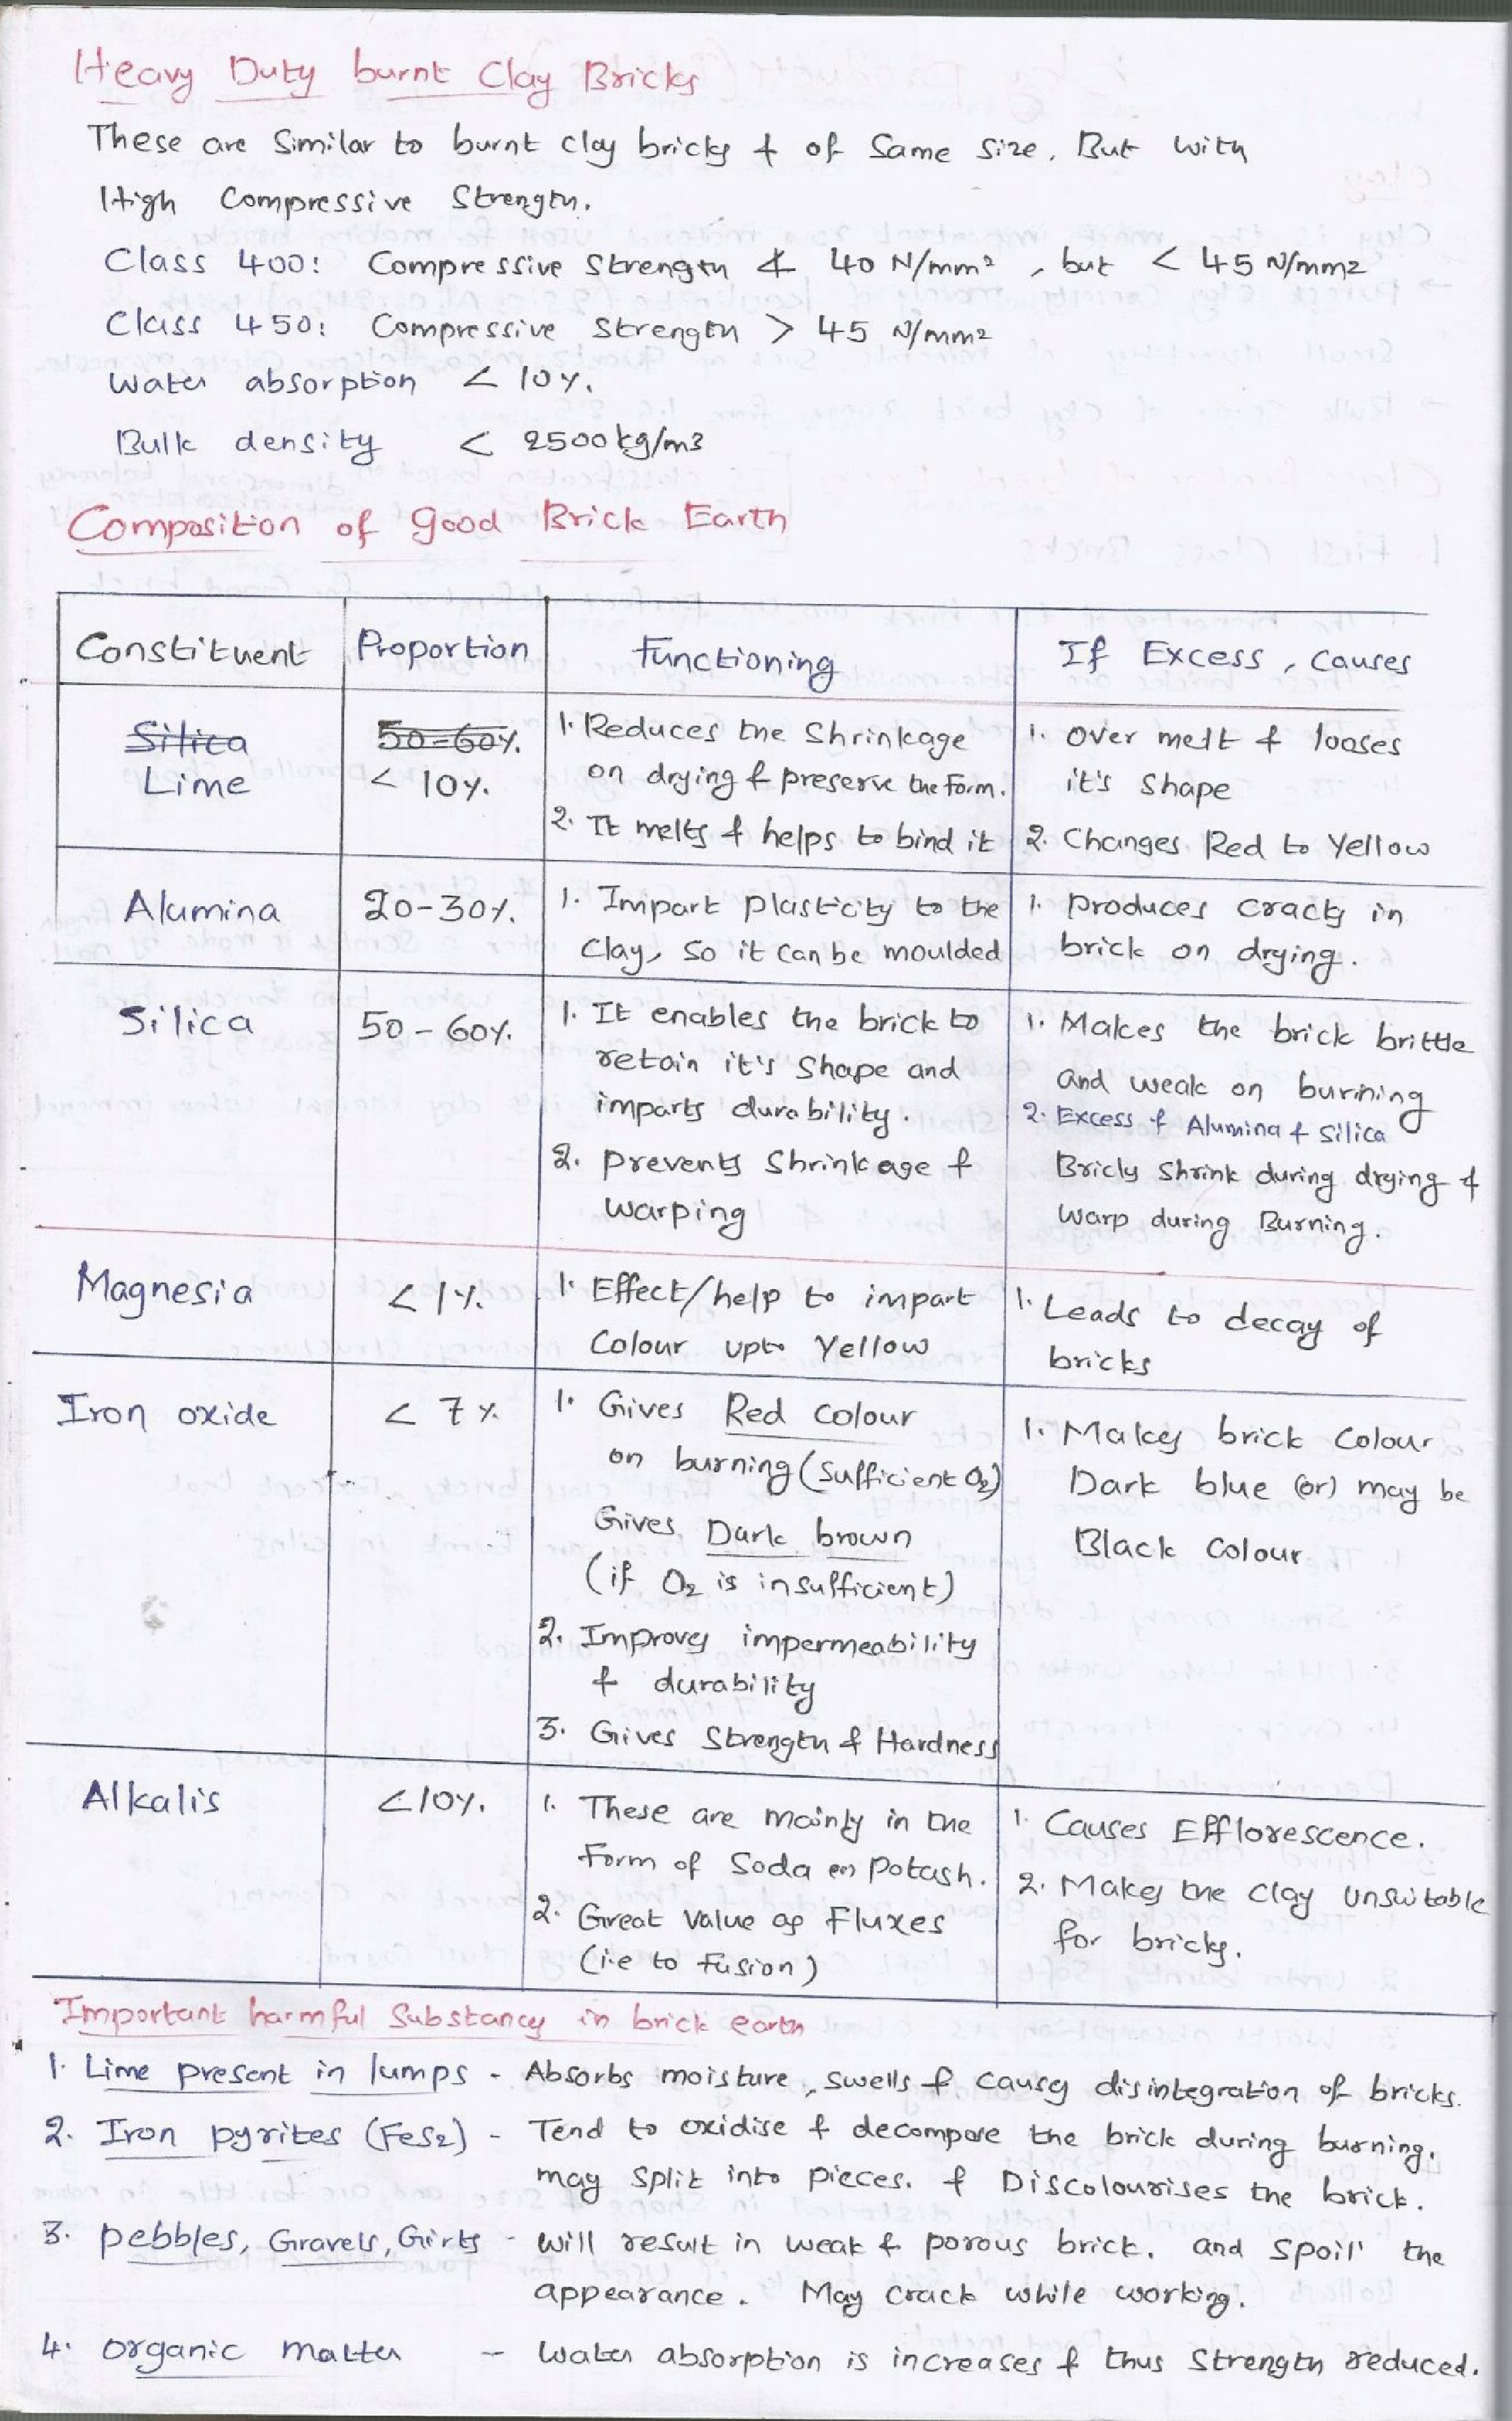 Heavy Duty burnt Clay Bricks
These are Similar to burnt clay bricks & of Same Size. But with
High Compressive Strength.
Class 400: Compressive Strength ≮ 40 N/mm² , but < 45 N/mm2
Class 450: Compressive Strength > 45 N/mm2
Water absorption < 10%.
Bulk density < 2500 kg/m3
Composition of good Brick Earth
Constituent Proportion Functioning If Excess, causes
Silica 50-60%. 1. Reduces the Shrinkage 1. Over melt & looses
Lime < 10%. on drying & preserve the form. it's Shape
2. It melts & helps to bind it 2. Changes Red to Yellow
Alumina 20-30%. 1. Impart plasticity to the 1. produces cracks in
Clay, so it can be moulded brick on drying.
Silica 50-60%. 1. It enables the brick to 1. Makes the brick brittle
retain it's Shape and and weak on burning
imparts durability. 2. Excess of Alumina & Silica
2. prevents Shrinkage & Bricks Shrink during drying &
warping warp during Burning.
Magnesia <1%. 1. Effect/help to impart 1. Leads to decay of
Colour upto Yellow bricks
Iron oxide < 7% 1. Gives Red colour 1. Makes brick Colour
on burning (Sufficient O2) Dark blue (or) may be
Gives Dark brown Black Colour
(if O2 is insufficient)
2. Improves impermeability
& durability
3. Gives Strength & Hardness
Alkalis <10%. 1. These are mainly in the 1. Causes Efflorescence.
Form of Soda or Potash. 2. Makes the Clay unsuitable
2. Great Value as Fluxes for bricks.
(i.e to fusion)
Important harmful Substances in brick earth
1. Lime present in lumps - Absorbs moisture, swells & causes disintegration of bricks.
2. Iron pyrites (FeS2) - Tend to oxidise & decompose the brick during burning.
may split into pieces. & Discolourises the brick.
3. pebbles, Gravels, Girts - will result in weak & porous brick. and spoil the
appearance. May crack while working.
4. organic matter - Water absorption is increases & thus Strength reduced.